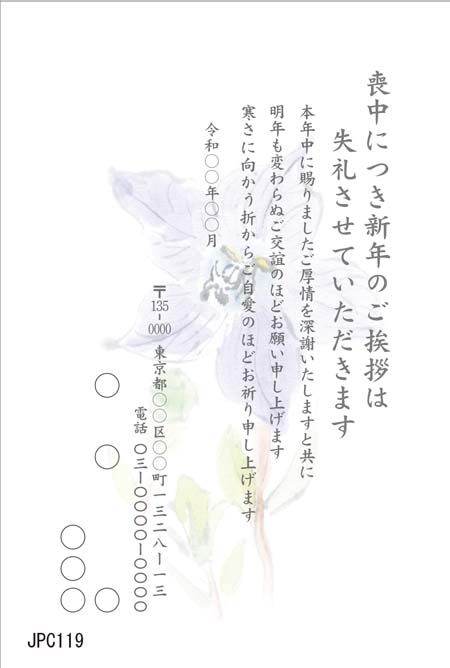 喪中につき新年のご挨拶は
失礼させていただきます
本年中に賜りましたご厚情を深謝いたしますと共に
明年も変わらぬご交誼のほどお願い申し上げます
寒さに向かう折からご自愛のほどお祈り申し上げます
令和〇〇年〇〇月
〒135-0000
東京都〇〇区〇〇町一三二八ー一三
電話 〇三ー〇〇〇〇ー〇〇〇〇
〇〇〇
〇〇〇
JPC119